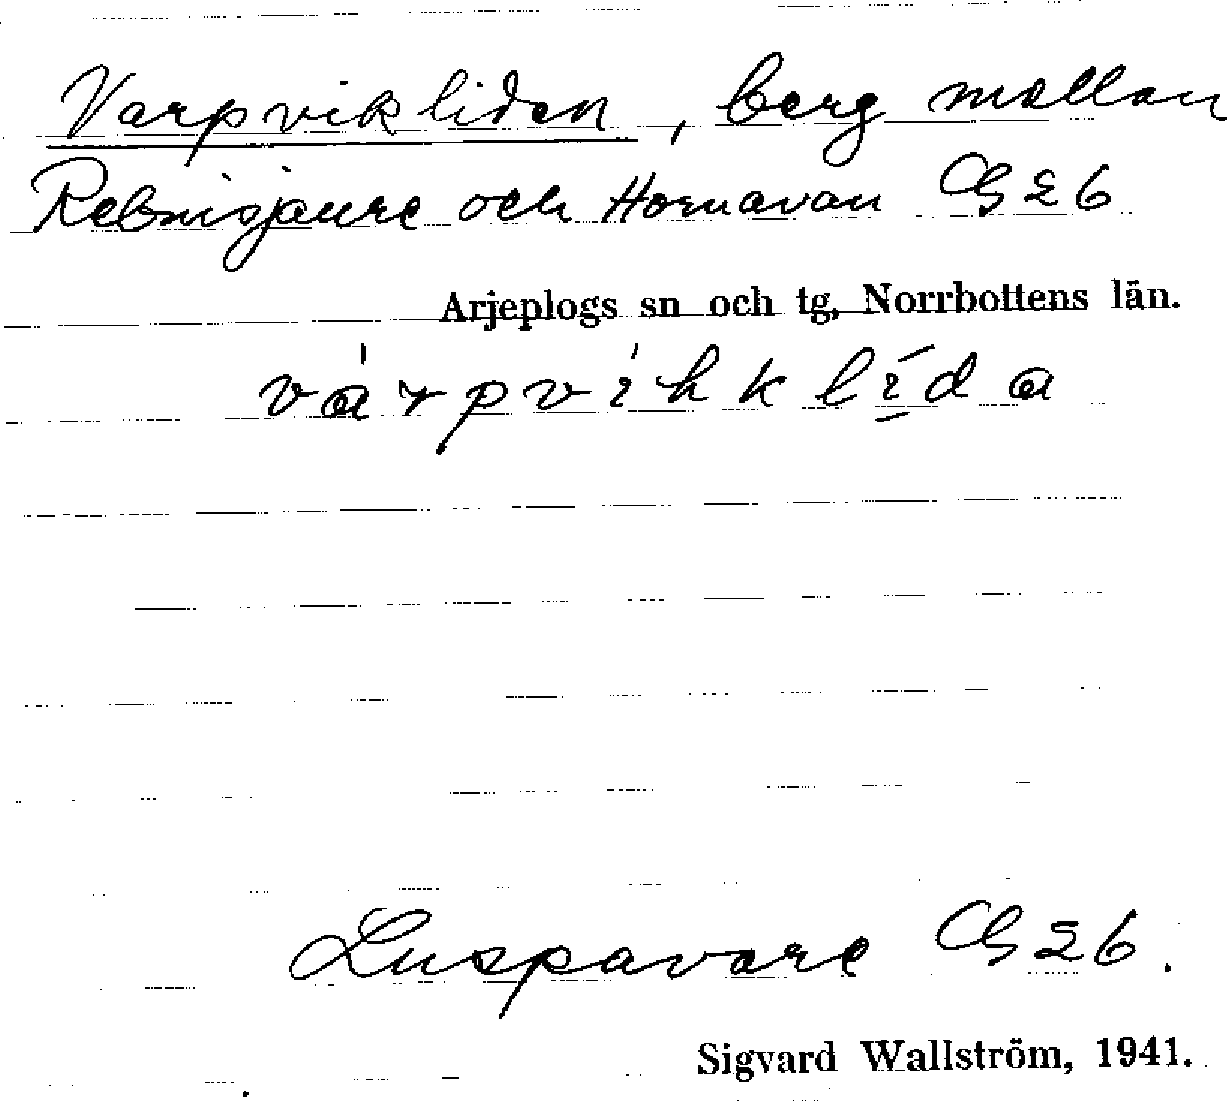 Varpvikliden, berg mellan
Rebnisjaure och Hornavan G 26
Arjeplogs sn och tg, Norrbottens län.
várpvíhklída
Luspavare G 26.
Sigvard Wallström, 1941.